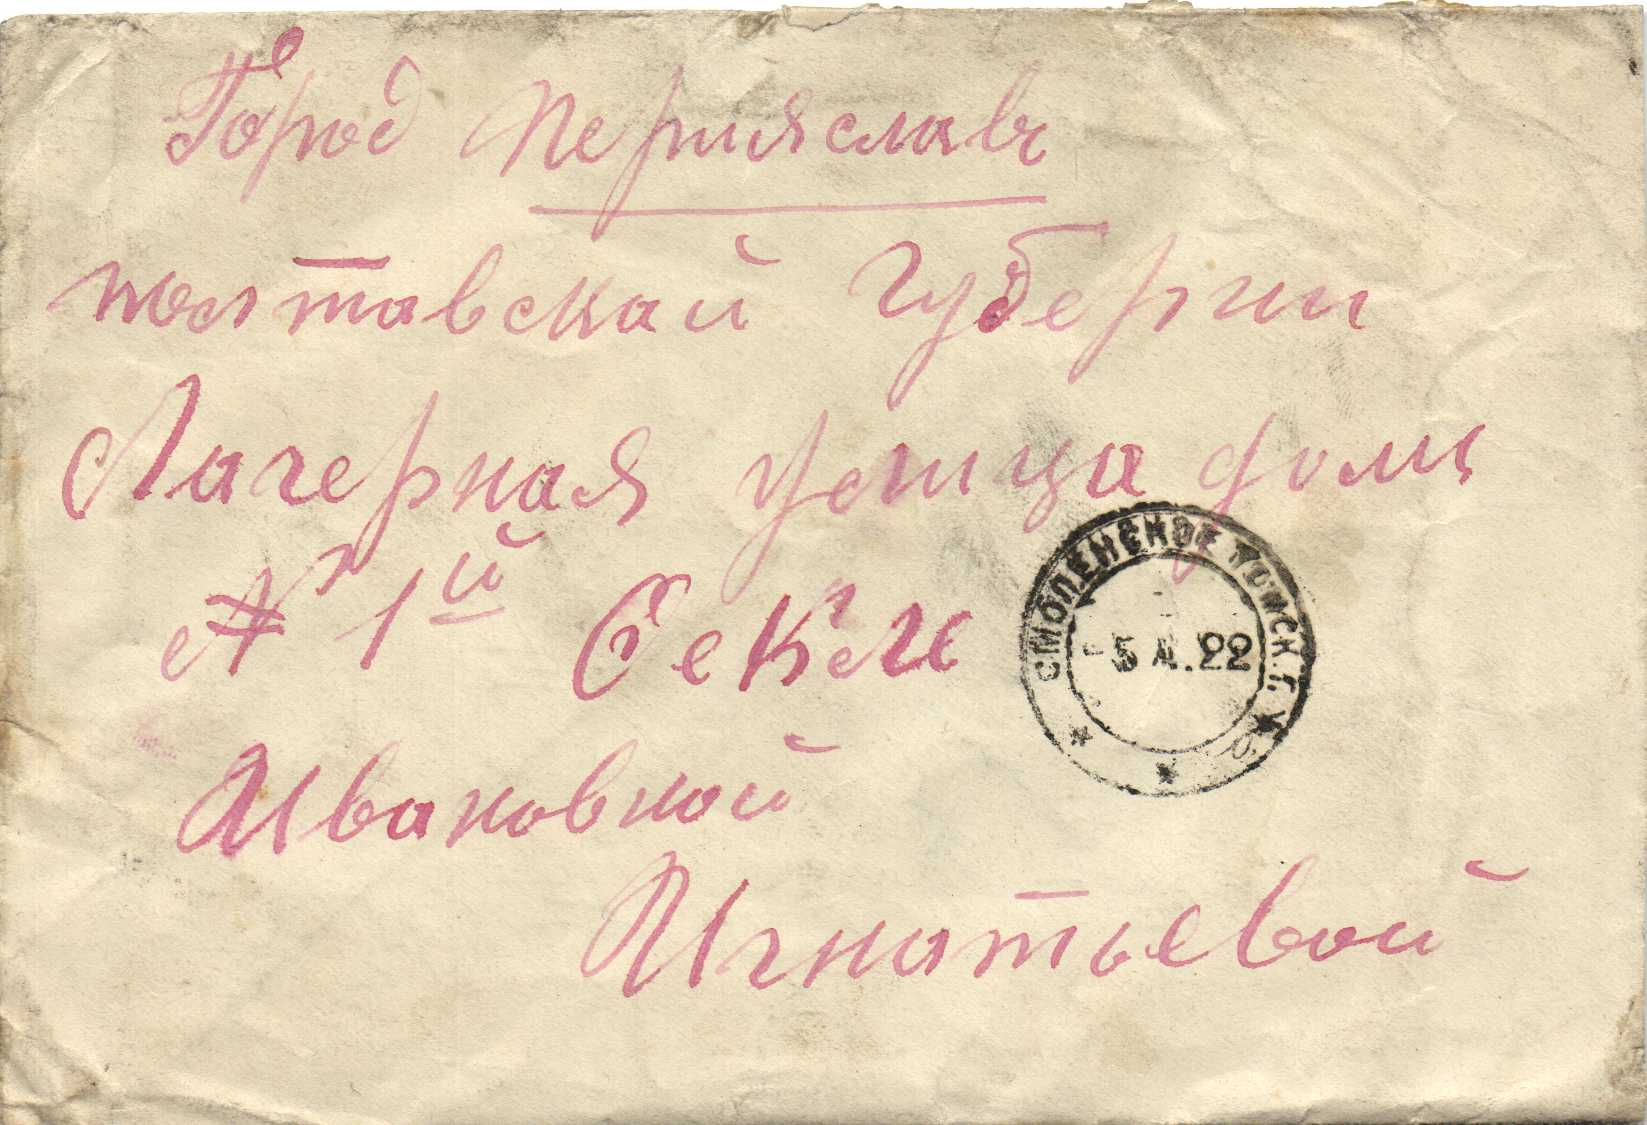 Город Перияславъ
полтавскай губернии
Лагерная улица домъ
№ 1й Секле
Ивановной
Игнатьевой
СМОЛЕНСКОЕ ТОМСК. Г.
5 22